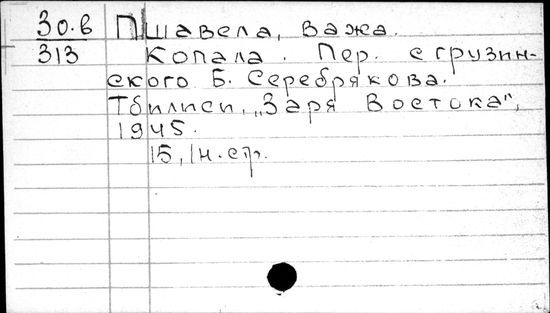 30.в Пшавела, Важа.
313 Копала. Пер. с грузин-
ского Б. Серебрякова.
Тбилиси, „Заря Востока",
1945.
15, 1 н. стр.